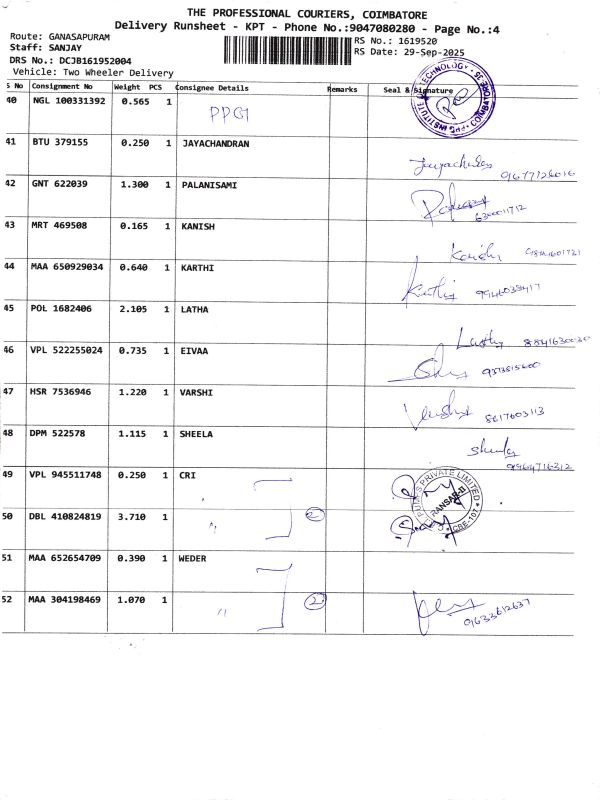 THE PROFESSIONAL COURIERS, COIMBATORE
Delivery Runsheet - KPT - Phone No.:9047080280 - Page No.:4
Route: GANASAPURAM
Staff: SANJAY
DRS No.: DCJB161952004
Vehicle: Two Wheeler Delivery
RS No.: 1619520
RS Date: 29-Sep-2025
S No Consignment No Weight PCS Consignee Details Remarks Seal & Signature
40 NGL 100331392 0.565 1 PPG
INSTITUTE OF TECHNOLOGY COIMBATORE
41 BTU 379155 0.250 1 JAYACHANDRAN
42 GNT 622039 1.300 1 PALANISAMI
43 MRT 469508 0.165 1 KANISH
44 MAA 650929034 0.640 1 KARTHI Karthi
45 POL 1682406 2.105 1 LATHA Latha
46 VPL 522255024 0.735 1 EIVAA
47 HSR 7536946 1.220 1 VARSHI Varshi 8617603113
48 DPM 522578 1.115 1 SHEELA Sheela 9964716312
49 VPL 945511748 0.250 1 CRI
PRIVATE LIMITED
50 DBL 410824819 3.710 1 " 2
51 MAA 652654709 0.390 1 WEDER
52 MAA 304198469 1.070 1 " 2 9633612637